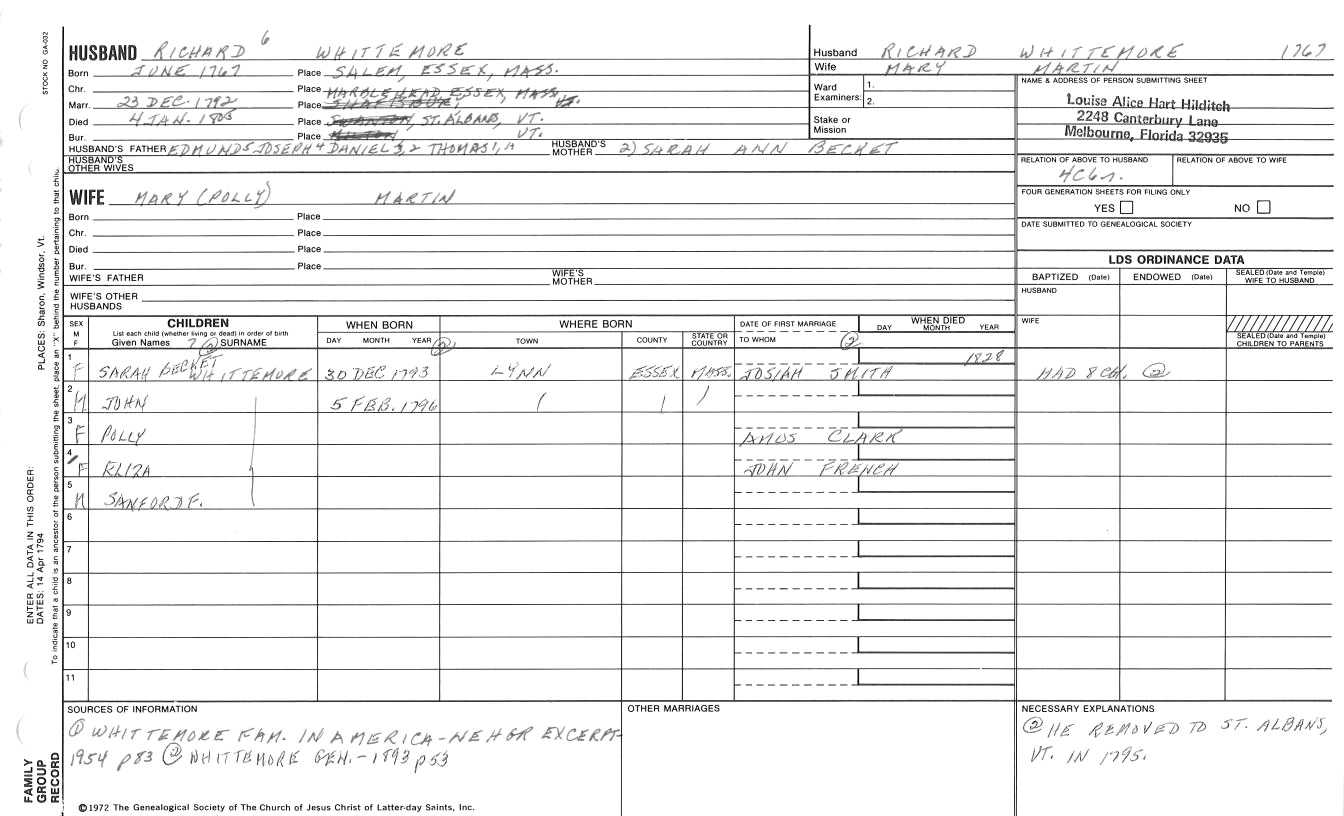 STOCK NO GA-032
HUSBAND RICHARD 6 WHITTEMORE
Born JUNE 1767 Place SALEM, ESSEX, MASS.
Chr. Place MARBLEHEAD, ESSEX, MASS
Marr. 23 DEC. 1792 Place SHAFTSBURY VT.
Died 4 JAN. 1805 Place SWANTON, ST. ALBANS, VT.
Bur. Place MILTON VT.
HUSBAND'S FATHER EDMUND 5 JOSEPH 4 DANIEL 3,2 THOMAS 1, A HUSBAND'S MOTHER 2) SARAH ANN BECKET
HUSBAND'S OTHER WIVES
WIFE MARY (POLLY) MARTIN
Born Place
Chr. Place
Died Place
Bur. Place
WIFE'S FATHER WIFE'S MOTHER
WIFE'S OTHER HUSBANDS
Husband RICHARD WHITTEMORE 1767
Wife MARY MARTIN
Ward Examiners: 1.
2.
Stake or Mission
NAME & ADDRESS OF PERSON SUBMITTING SHEET
Louise Alice Hart Hilditch
2248 Canterbury Lane
Melbourne, Florida 32935
RELATION OF ABOVE TO HUSBAND RELATION OF ABOVE TO WIFE
4C6r.
FOUR GENERATION SHEETS FOR FILING ONLY
YES NO
DATE SUBMITTED TO GENEALOGICAL SOCIETY
LDS ORDINANCE DATA
BAPTIZED (Date) ENDOWED (Date) SEALED (Date and Temple) WIFE TO HUSBAND
HUSBAND
WIFE
SEALED (Date and Temple) CHILDREN TO PARENTS
SEX M F
CHILDREN
List each child (whether living or dead) in order of birth
Given Names ? ② SURNAME
WHEN BORN
DAY MONTH YEAR ②
WHERE BORN
TOWN COUNTY STATE OR COUNTRY
DATE OF FIRST MARRIAGE
TO WHOM ②
WHEN DIED
DAY MONTH YEAR
1 F SARAH BECKET WHITTEMORE 30 DEC 1793 LYNN ESSEX MASS. JOSIAH SMITH 1828 HAD 8 CH. ②
2 M JOHN 5 FEB. 1796
3 F POLLY AMOS CLARK
4 F ELIZA JOHN FRENCH
5 M SANFORD F.
6
7
8
9
10
11
SOURCES OF INFORMATION
① WHITTEMORE FAM. IN AMERICA-NEHGR EXCERPT-
1954 p83 ② WHITTEMORE GEN.-1893 p53
OTHER MARRIAGES
NECESSARY EXPLANATIONS
② HE REMOVED TO ST. ALBANS,
VT. IN 1795.
©1972 The Genealogical Society of The Church of Jesus Christ of Latter-day Saints, Inc.
PLACES: Sharon, Windsor, Vt.
ENTER ALL DATA IN THIS ORDER:
DATES: 14 Apr 1794
To indicate that a child is an ancestor of the person submitting the sheet, place an "X" behind the number pertaining to that child.
FAMILY
GROUP
RECORD